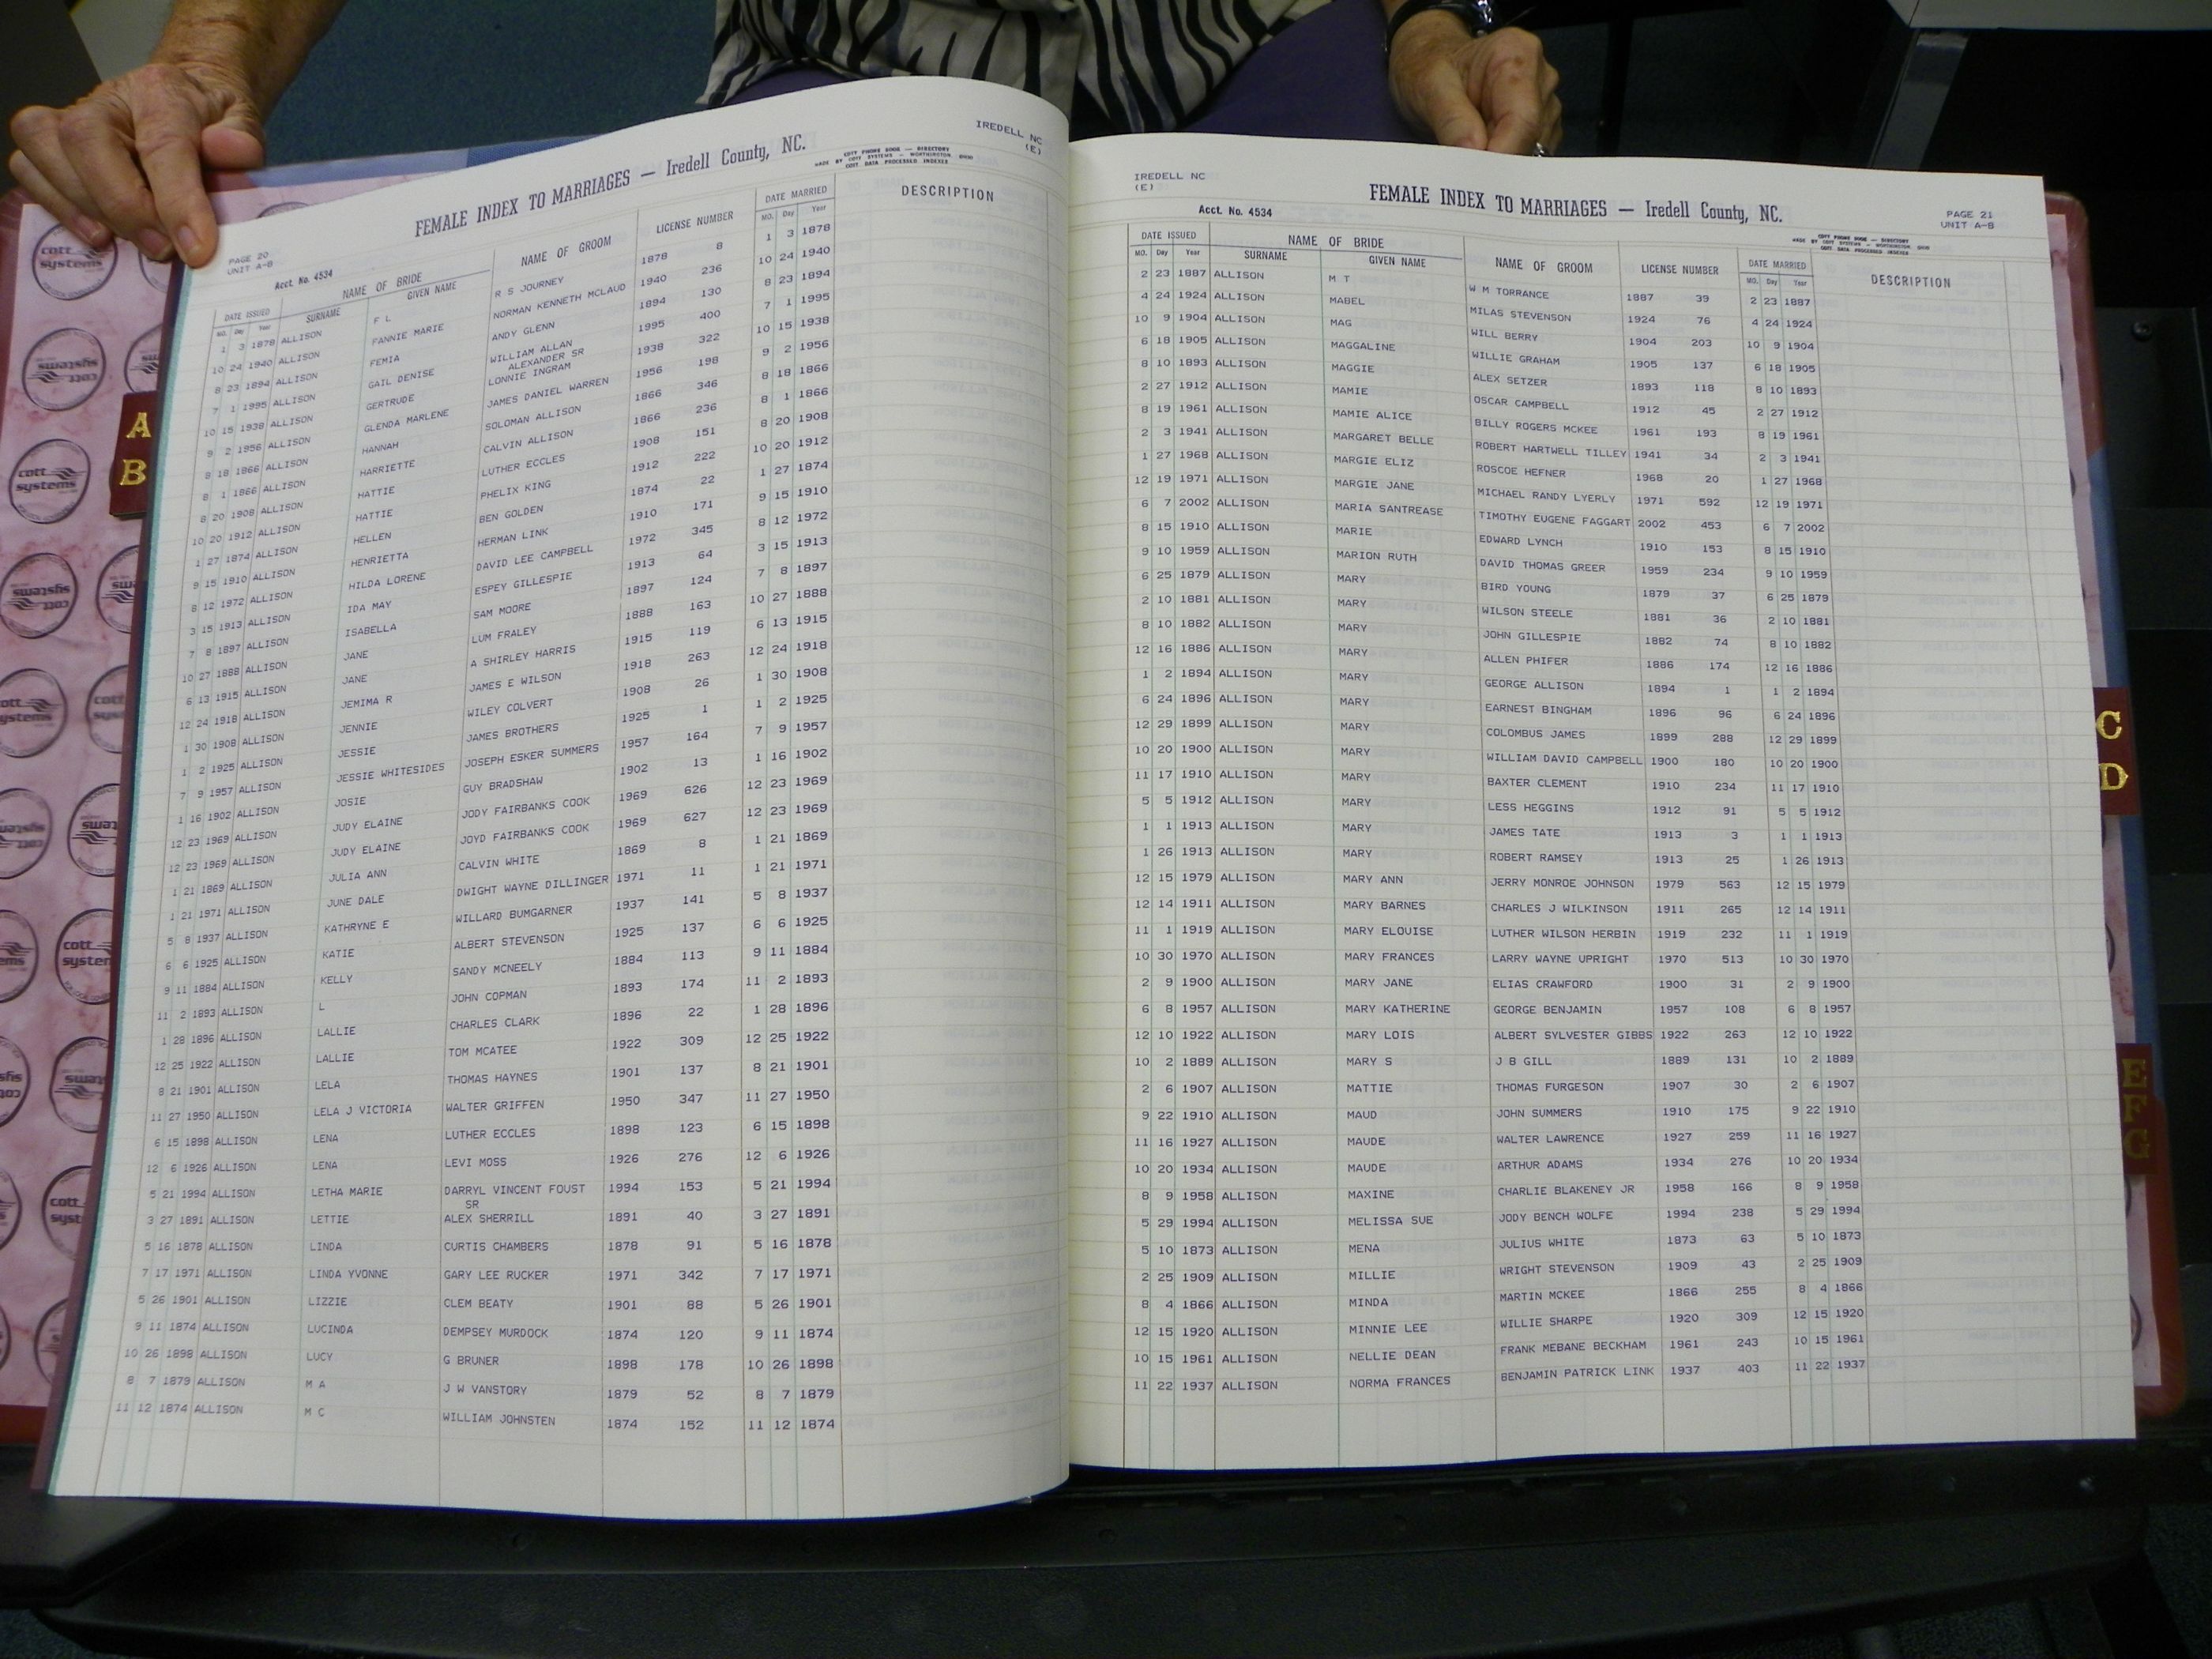 IREDELL NC
(E)
FEMALE INDEX TO MARRIAGES — Iredell County, NC.
COTT PHONE BOOK — DIRECTORY
MADE BY COTT SYSTEMS — WORTHINGTON OHIO
COTT DATA PROCESSED INDEXES
PAGE 20
UNIT A-B
Acct. No. 4534
DATE ISSUED NAME OF BRIDE NAME OF GROOM LICENSE NUMBER DATE MARRIED DESCRIPTION
MO. Day Year SURNAME GIVEN NAME MO. Day Year
1 3 1878 ALLISON F L R S JOURNEY 1878 8 1 3 1878
10 24 1940 ALLISON FANNIE MARIE NORMAN KENNETH MCLAUD 1940 236 10 24 1940
8 23 1894 ALLISON FEMIA ANDY GLENN 1894 130 8 23 1894
7 1 1995 ALLISON GAIL DENISE WILLIAM ALLAN 1995 400 7 1 1995
ALEXANDER SR
10 15 1938 ALLISON GERTRUDE LONNIE INGRAM 1938 322 10 15 1938
9 2 1956 ALLISON GLENDA MARLENE JAMES DANIEL WARREN 1956 198 9 2 1956
8 18 1866 ALLISON HANNAH SOLOMAN ALLISON 1866 346 8 18 1866
8 1 1866 ALLISON HARRIETTE CALVIN ALLISON 1866 236 8 1 1866
8 20 1908 ALLISON HATTIE LUTHER ECCLES 1908 151 8 20 1908
10 20 1912 ALLISON HATTIE PHELIX KING 1912 222 10 20 1912
1 27 1874 ALLISON HELLEN BEN GOLDEN 1874 22 1 27 1874
9 15 1910 ALLISON HENRIETTA HERMAN LINK 1910 171 9 15 1910
8 12 1972 ALLISON HILDA LORENE DAVID LEE CAMPBELL 1972 345 8 12 1972
3 15 1913 ALLISON IDA MAY ESPEY GILLESPIE 1913 64 3 15 1913
7 8 1897 ALLISON ISABELLA SAM MOORE 1897 124 7 8 1897
10 27 1888 ALLISON JANE LUM FRALEY 1888 163 10 27 1888
6 13 1915 ALLISON JANE A SHIRLEY HARRIS 1915 119 6 13 1915
12 24 1918 ALLISON JEMIMA R JAMES E WILSON 1918 263 12 24 1918
1 30 1908 ALLISON JENNIE WILEY COLVERT 1908 26 1 30 1908
1 2 1925 ALLISON JESSIE JAMES BROTHERS 1925 1 1 2 1925
7 9 1957 ALLISON JESSIE WHITESIDES JOSEPH ESKER SUMMERS 1957 164 7 9 1957
1 16 1902 ALLISON JOSIE GUY BRADSHAW 1902 13 1 16 1902
12 23 1969 ALLISON JUDY ELAINE JODY FAIRBANKS COOK 1969 626 12 23 1969
12 23 1969 ALLISON JUDY ELAINE JOYD FAIRBANKS COOK 1969 627 12 23 1969
1 21 1869 ALLISON JULIA ANN CALVIN WHITE 1869 8 1 21 1869
1 21 1971 ALLISON JUNE DALE DWIGHT WAYNE DILLINGER 1971 11 1 21 1971
5 8 1937 ALLISON KATHRYNE E WILLARD BUMGARNER 1937 141 5 8 1937
6 6 1925 ALLISON KATIE ALBERT STEVENSON 1925 137 6 6 1925
9 11 1884 ALLISON KELLY SANDY MCNEELY 1884 113 9 11 1884
11 2 1893 ALLISON L JOHN COPMAN 1893 174 11 2 1893
1 28 1896 ALLISON LALLIE CHARLES CLARK 1896 22 1 28 1896
12 25 1922 ALLISON LALLIE TOM MCATEE 1922 309 12 25 1922
8 21 1901 ALLISON LELA THOMAS HAYNES 1901 137 8 21 1901
11 27 1950 ALLISON LELA J VICTORIA WALTER GRIFFEN 1950 347 11 27 1950
6 15 1898 ALLISON LENA LUTHER ECCLES 1898 123 6 15 1898
12 6 1926 ALLISON LENA LEVI MOSS 1926 276 12 6 1926
5 21 1994 ALLISON LETHA MARIE DARRYL VINCENT FOUST 1994 153 5 21 1994
SR
3 27 1891 ALLISON LETTIE ALEX SHERRILL 1891 40 3 27 1891
5 16 1878 ALLISON LINDA CURTIS CHAMBERS 1878 91 5 16 1878
7 17 1971 ALLISON LINDA YVONNE GARY LEE RUCKER 1971 342 7 17 1971
5 26 1901 ALLISON LIZZIE CLEM BEATY 1901 88 5 26 1901
9 11 1874 ALLISON LUCINDA DEMPSEY MURDOCK 1874 120 9 11 1874
10 26 1898 ALLISON LUCY G BRUNER 1898 178 10 26 1898
8 7 1879 ALLISON M A J W VANSTORY 1879 52 8 7 1879
11 12 1874 ALLISON M C WILLIAM JOHNSTEN 1874 152 11 12 1874
IREDELL NC
(E)
FEMALE INDEX TO MARRIAGES — Iredell County, NC.
Acct. No. 4534
PAGE 21
UNIT A-B
COTT PHONE BOOK — DIRECTORY
MADE BY COTT SYSTEMS — WORTHINGTON OHIO
COTT DATA PROCESSED INDEXES
DATE ISSUED NAME OF BRIDE NAME OF GROOM LICENSE NUMBER DATE MARRIED DESCRIPTION
MO. Day Year SURNAME GIVEN NAME MO. Day Year
2 23 1887 ALLISON M T W M TORRANCE 1887 39 2 23 1887
4 24 1924 ALLISON MABEL MILAS STEVENSON 1924 76 4 24 1924
10 9 1904 ALLISON MAG WILL BERRY 1904 203 10 9 1904
6 18 1905 ALLISON MAGGALINE WILLIE GRAHAM 1905 137 6 18 1905
8 10 1893 ALLISON MAGGIE ALEX SETZER 1893 118 8 10 1893
2 27 1912 ALLISON MAMIE OSCAR CAMPBELL 1912 45 2 27 1912
8 19 1961 ALLISON MAMIE ALICE BILLY ROGERS MCKEE 1961 193 8 19 1961
2 3 1941 ALLISON MARGARET BELLE ROBERT HARTWELL TILLEY 1941 34 2 3 1941
1 27 1968 ALLISON MARGIE ELIZ ROSCOE HEFNER 1968 20 1 27 1968
12 19 1971 ALLISON MARGIE JANE MICHAEL RANDY LYERLY 1971 592 12 19 1971
6 7 2002 ALLISON MARIA SANTREASE TIMOTHY EUGENE FAGGART 2002 453 6 7 2002
8 15 1910 ALLISON MARIE EDWARD LYNCH 1910 153 8 15 1910
9 10 1959 ALLISON MARION RUTH DAVID THOMAS GREER 1959 234 9 10 1959
6 25 1879 ALLISON MARY BIRD YOUNG 1879 37 6 25 1879
2 10 1881 ALLISON MARY WILSON STEELE 1881 36 2 10 1881
8 10 1882 ALLISON MARY JOHN GILLESPIE 1882 74 8 10 1882
12 16 1886 ALLISON MARY ALLEN PHIFER 1886 174 12 16 1886
1 2 1894 ALLISON MARY GEORGE ALLISON 1894 1 1 2 1894
6 24 1896 ALLISON MARY EARNEST BINGHAM 1896 96 6 24 1896
12 29 1899 ALLISON MARY COLOMBUS JAMES 1899 288 12 29 1899
10 20 1900 ALLISON MARY WILLIAM DAVID CAMPBELL 1900 180 10 20 1900
11 17 1910 ALLISON MARY BAXTER CLEMENT 1910 234 11 17 1910
5 5 1912 ALLISON MARY LESS HEGGINS 1912 91 5 5 1912
1 1 1913 ALLISON MARY JAMES TATE 1913 3 1 1 1913
1 26 1913 ALLISON MARY ROBERT RAMSEY 1913 25 1 26 1913
12 15 1979 ALLISON MARY ANN JERRY MONROE JOHNSON 1979 563 12 15 1979
12 14 1911 ALLISON MARY BARNES CHARLES J WILKINSON 1911 265 12 14 1911
11 1 1919 ALLISON MARY ELOUISE LUTHER WILSON HERBIN 1919 232 11 1 1919
10 30 1970 ALLISON MARY FRANCES LARRY WAYNE UPRIGHT 1970 513 10 30 1970
2 9 1900 ALLISON MARY JANE ELIAS CRAWFORD 1900 31 2 9 1900
6 8 1957 ALLISON MARY KATHERINE GEORGE BENJAMIN 1957 108 6 8 1957
12 10 1922 ALLISON MARY LOIS ALBERT SYLVESTER GIBBS 1922 263 12 10 1922
10 2 1889 ALLISON MARY S J B GILL 1889 131 10 2 1889
2 6 1907 ALLISON MATTIE THOMAS FURGESON 1907 30 2 6 1907
9 22 1910 ALLISON MAUD JOHN SUMMERS 1910 175 9 22 1910
11 16 1927 ALLISON MAUDE WALTER LAWRENCE 1927 259 11 16 1927
10 20 1934 ALLISON MAUDE ARTHUR ADAMS 1934 276 10 20 1934
8 9 1958 ALLISON MAXINE CHARLIE BLAKENEY JR 1958 166 8 9 1958
5 29 1994 ALLISON MELISSA SUE JODY BENCH WOLFE 1994 238 5 29 1994
5 10 1873 ALLISON MENA JULIUS WHITE 1873 63 5 10 1873
2 25 1909 ALLISON MILLIE WRIGHT STEVENSON 1909 43 2 25 1909
8 4 1866 ALLISON MINDA MARTIN MCKEE 1866 255 8 4 1866
12 15 1920 ALLISON MINNIE LEE WILLIE SHARPE 1920 309 12 15 1920
10 15 1961 ALLISON NELLIE DEAN FRANK MEBANE BECKHAM 1961 243 10 15 1961
11 22 1937 ALLISON NORMA FRANCES BENJAMIN PATRICK LINK 1937 403 11 22 1937
A
B
C
D
E
F
G
cott
systems